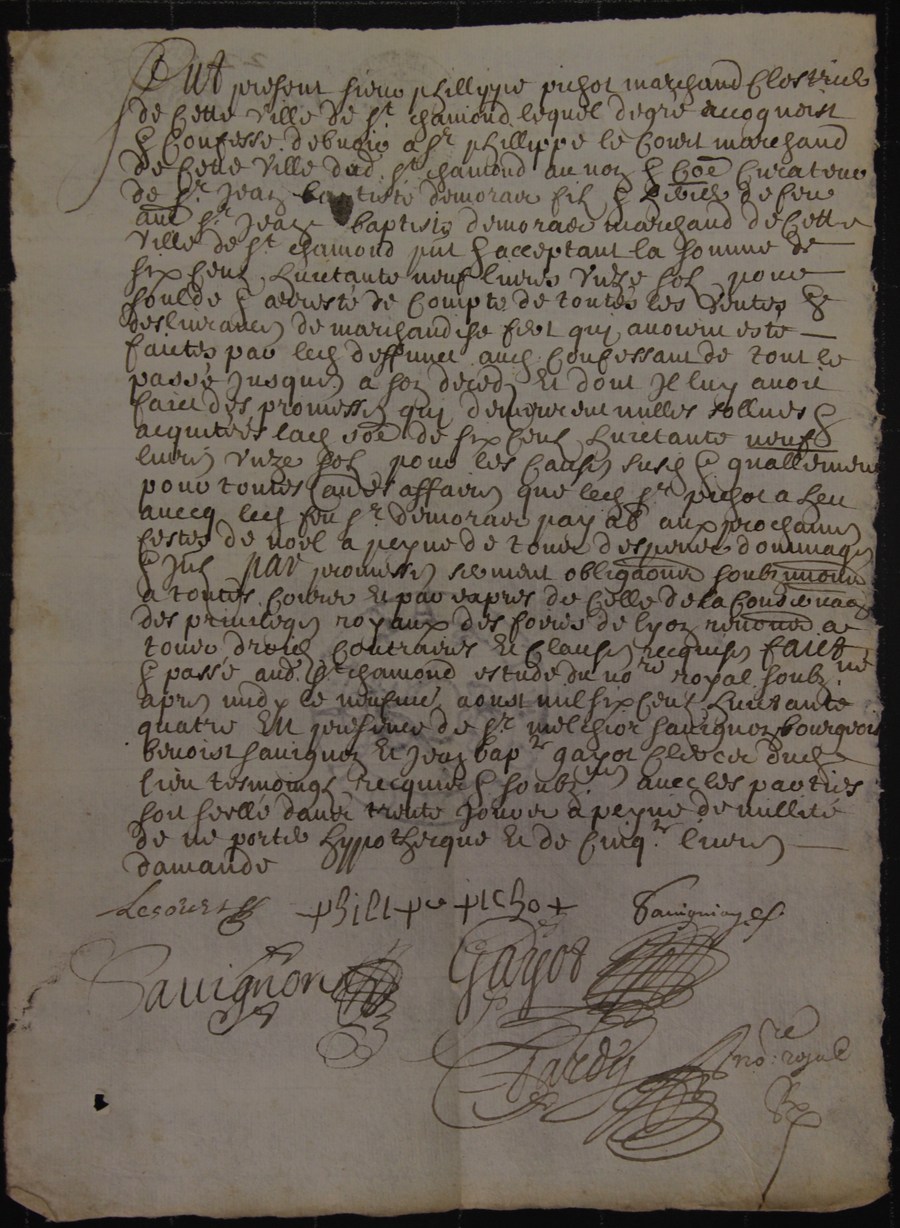 Fut present sieur phillippe pichot marchand
de cette ville de st chamond lequel de gre a recogneust
& confesse debvoir a sr phillippe le court marchand
de cette ville dud st chamond au nom & coe curateur
de sr Jean baptiste demorar fils & de feu
aut sr Jean baptiste demorar marchand de cette
ville de st chamond pnt & acceptant la somme de
six cens huictante neuf livres unze sols pour
soulde & arreste de compte de toutes les ventes &
deslivrances de marchandise qui avoient este
faites par led deffunct aud confessant de tout le
passé jusques a son deceds et dont Il luy avoit
faict des promesses qui demeurent nulles sollues &
acquitées lad soe de six cens huictante neuf
livres unze sols pour les causes susd & quallement
pour toutes autres affaires que led sr pichot a heu
avecq led feu sr demorar payab aux prochaines
festes de noel a peyne de tous despens dommages
& Ints par promesses serment obligaons soubz
a toutes courts et par expres de celle de la
des privileges royaux des foires de lyon renonce a
tous droits contraires et clauses requises faict
& passé aud st chamond estude du no.re royal soubz.né
apres midy le neufme aoust mil six cens huictante
quatre en presence de sr melchior sauvignon bourgeois
benoist sauvignon et Jean bap.te gayot clercz dud
lieu tesmoings requis & soubz.nes avec les parties
soit seellé dans trente jours a peyne de nullité
de ne porter hypotheque et de cinq.te livres
damande
Lecourt philipe pichot Sauvignon
Sauvignon Gayot
Tardy no.re royal